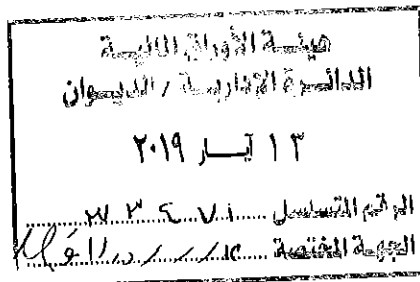 هيئة الأوراق المالية
الدائرة الإدارية / الديوان
١٣ آيار ٢٠١٩
الرقم التسلسل
الجهة المختصة